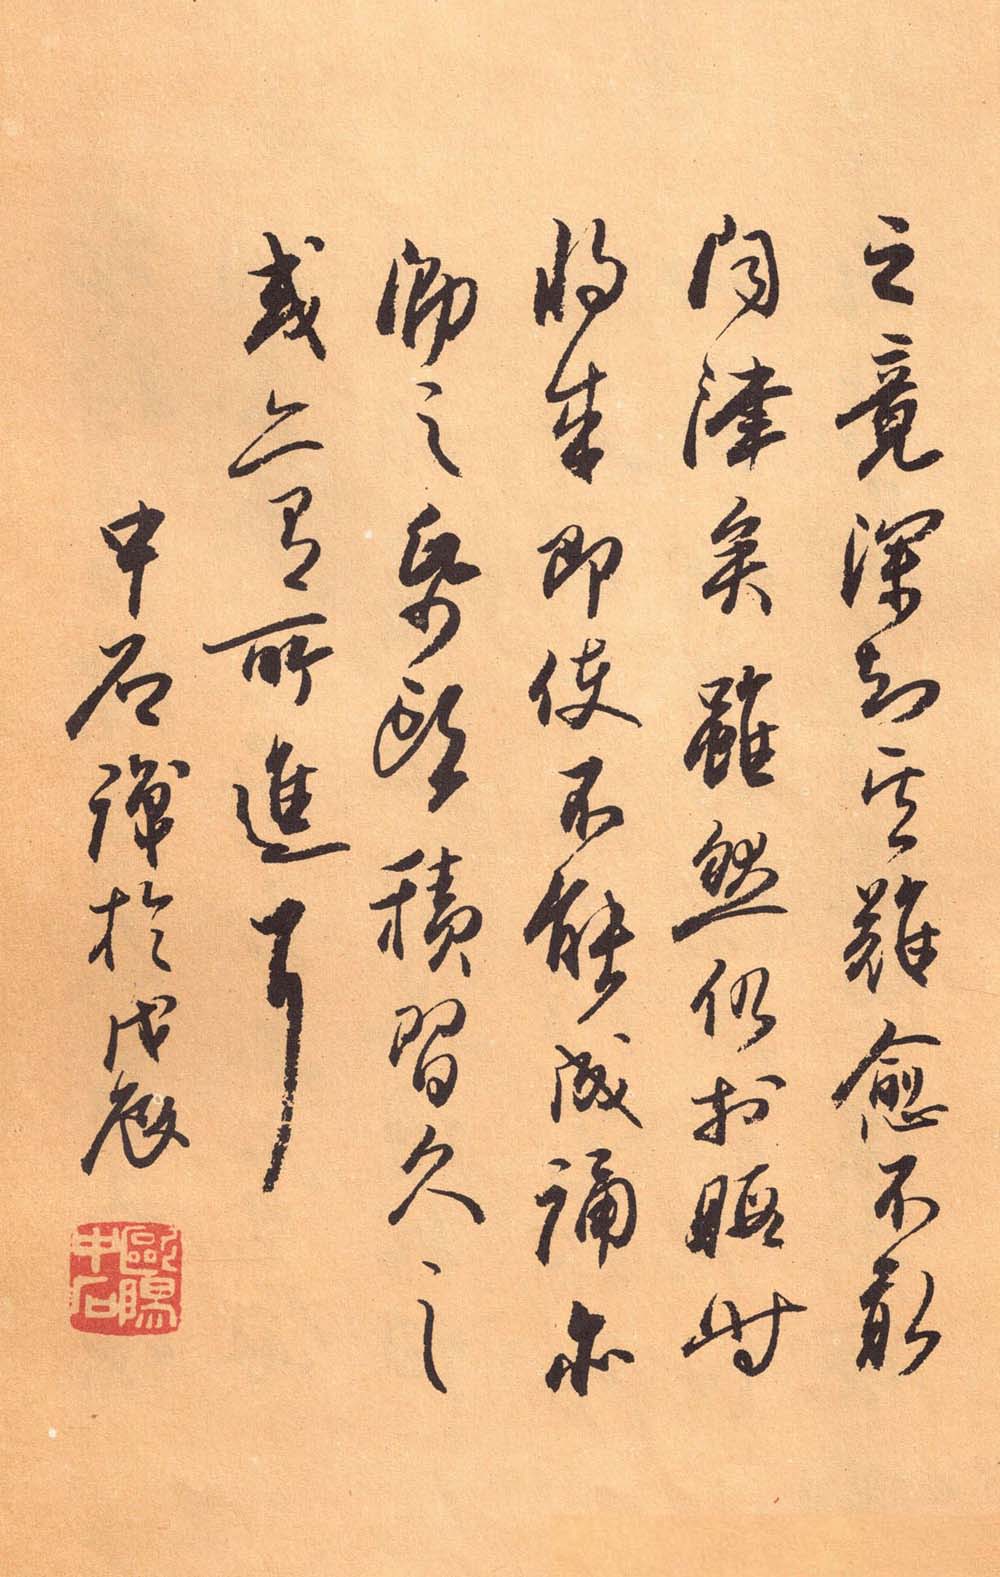 之竟深知其難愈不敢
問津矣雖然仍於暇時
將来即使不能成誦亦
之積習久之
或亦有所進耳
中石於戊辰
歐陽中石